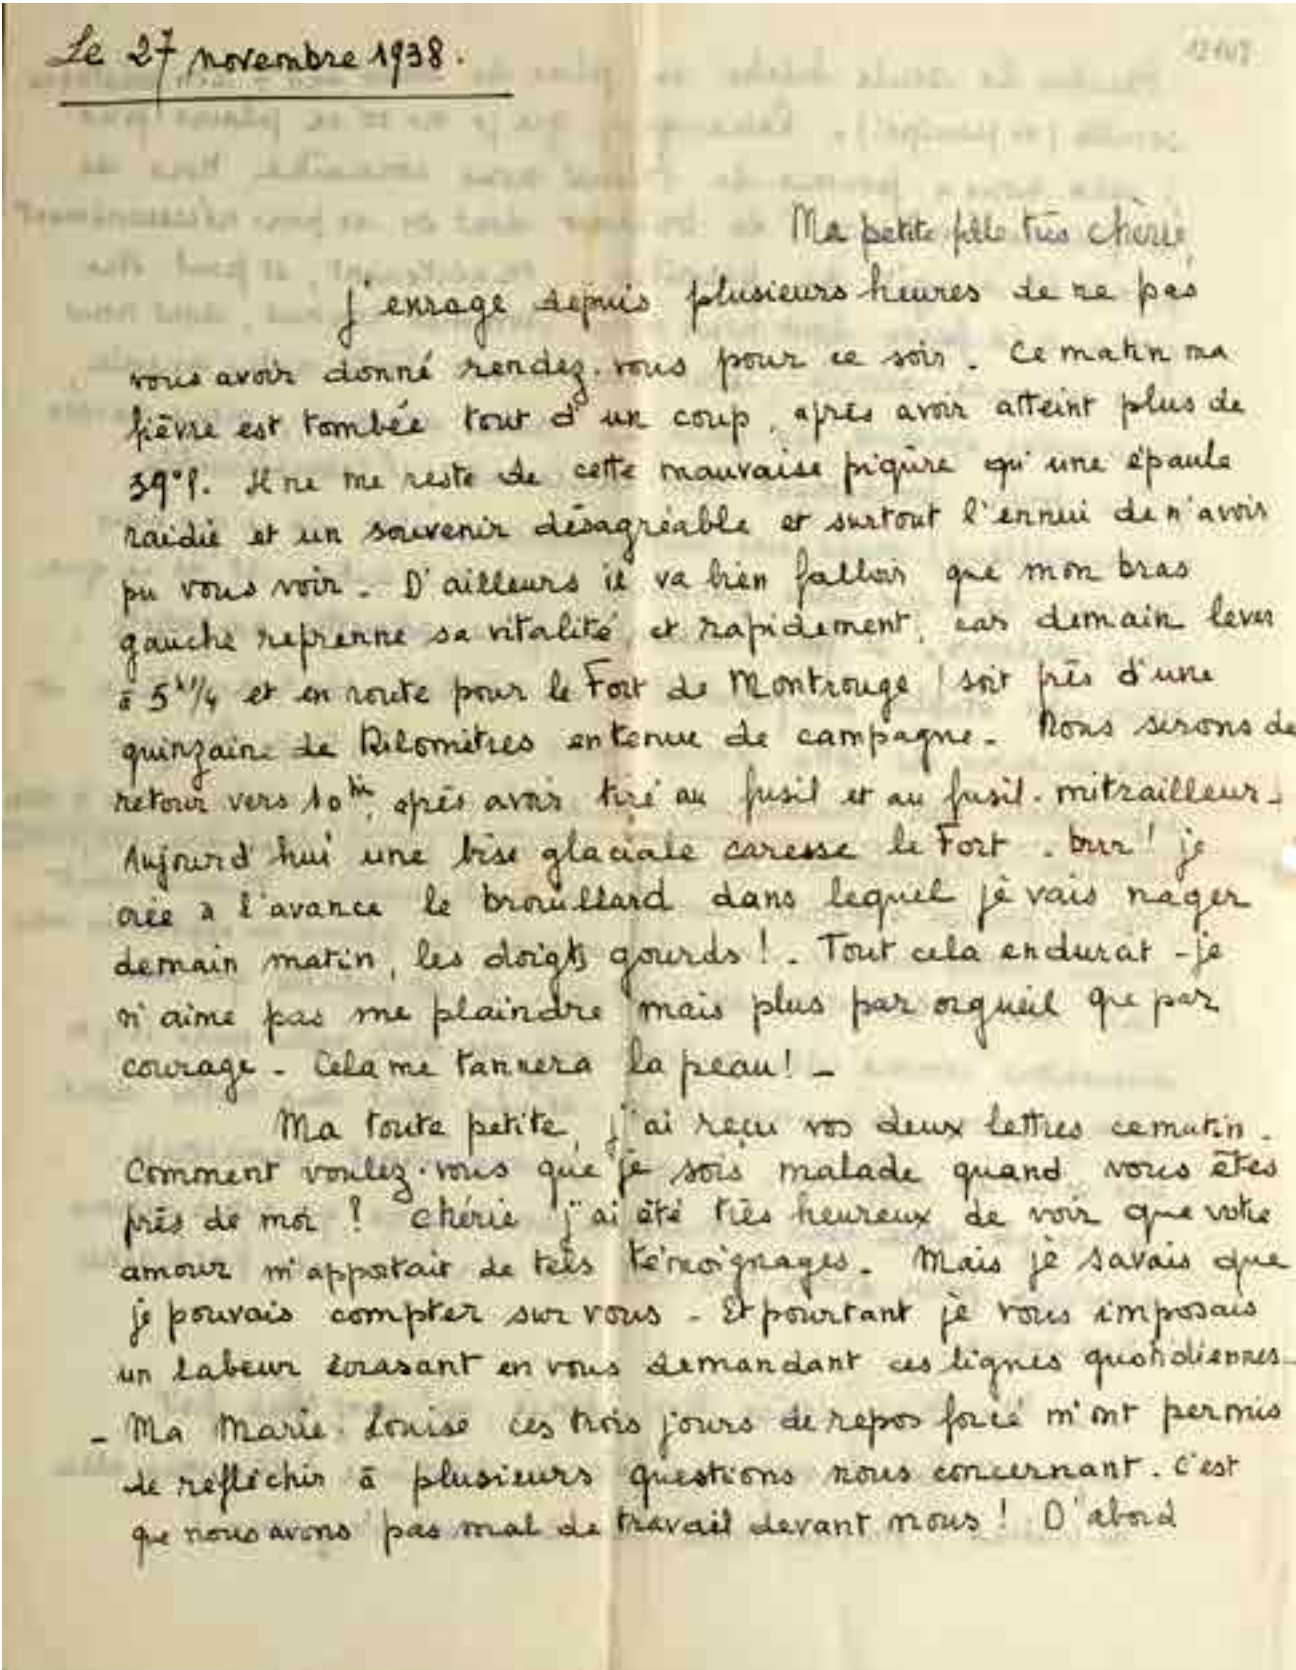 Le 27 novembre 1938.
Ma petite fille très chérie,
J'enrage depuis plusieurs heures de ne pas
vous avoir donné rendez-vous pour ce soir. Ce matin ma
fièvre est tombée tout d'un coup, après avoir atteint plus de
39°. Il ne me reste de cette mauvaise piqûre qu'une épaule
raidie et un souvenir désagréable et surtout l'ennui de n'avoir
pu vous voir. D'ailleurs il va bien falloir que mon bras
gauche reprenne sa vitalité, et rapidement, car demain lever
à 5h 1/4 et en route pour le Fort de Montrouge ! soit près d'une
quinzaine de kilomètres en tenue de campagne. Nous serons de
retour vers 10h, après avoir tiré au fusil et au fusil-mitrailleur.
Aujourd'hui une bise glaciale caresse le Fort. brrr! je
crée à l'avance le brouillard dans lequel je vais nager
demain matin, les doigts gourds! - Tout cela endurcit - je
n'aime pas me plaindre mais plus par orgueil que par
courage - Cela me tannera la peau! -
Ma toute petite, j'ai reçu vos deux lettres ce matin.
Comment voulez-vous que je sois malade quand vous êtes
près de moi ? Chérie j'ai été très heureux de voir que votre
amour m'apportait de tels témoignages. Mais je savais que
je pouvais compter sur vous - Et pourtant je vous imposais
un labeur écrasant en vous demandant ces lignes quotidiennes -
- Ma Marie-Louise ces trois jours de repos forcé m'ont permis
de réfléchir à plusieurs questions nous concernant. C'est
que nous avons pas mal de travail devant nous! D'abord